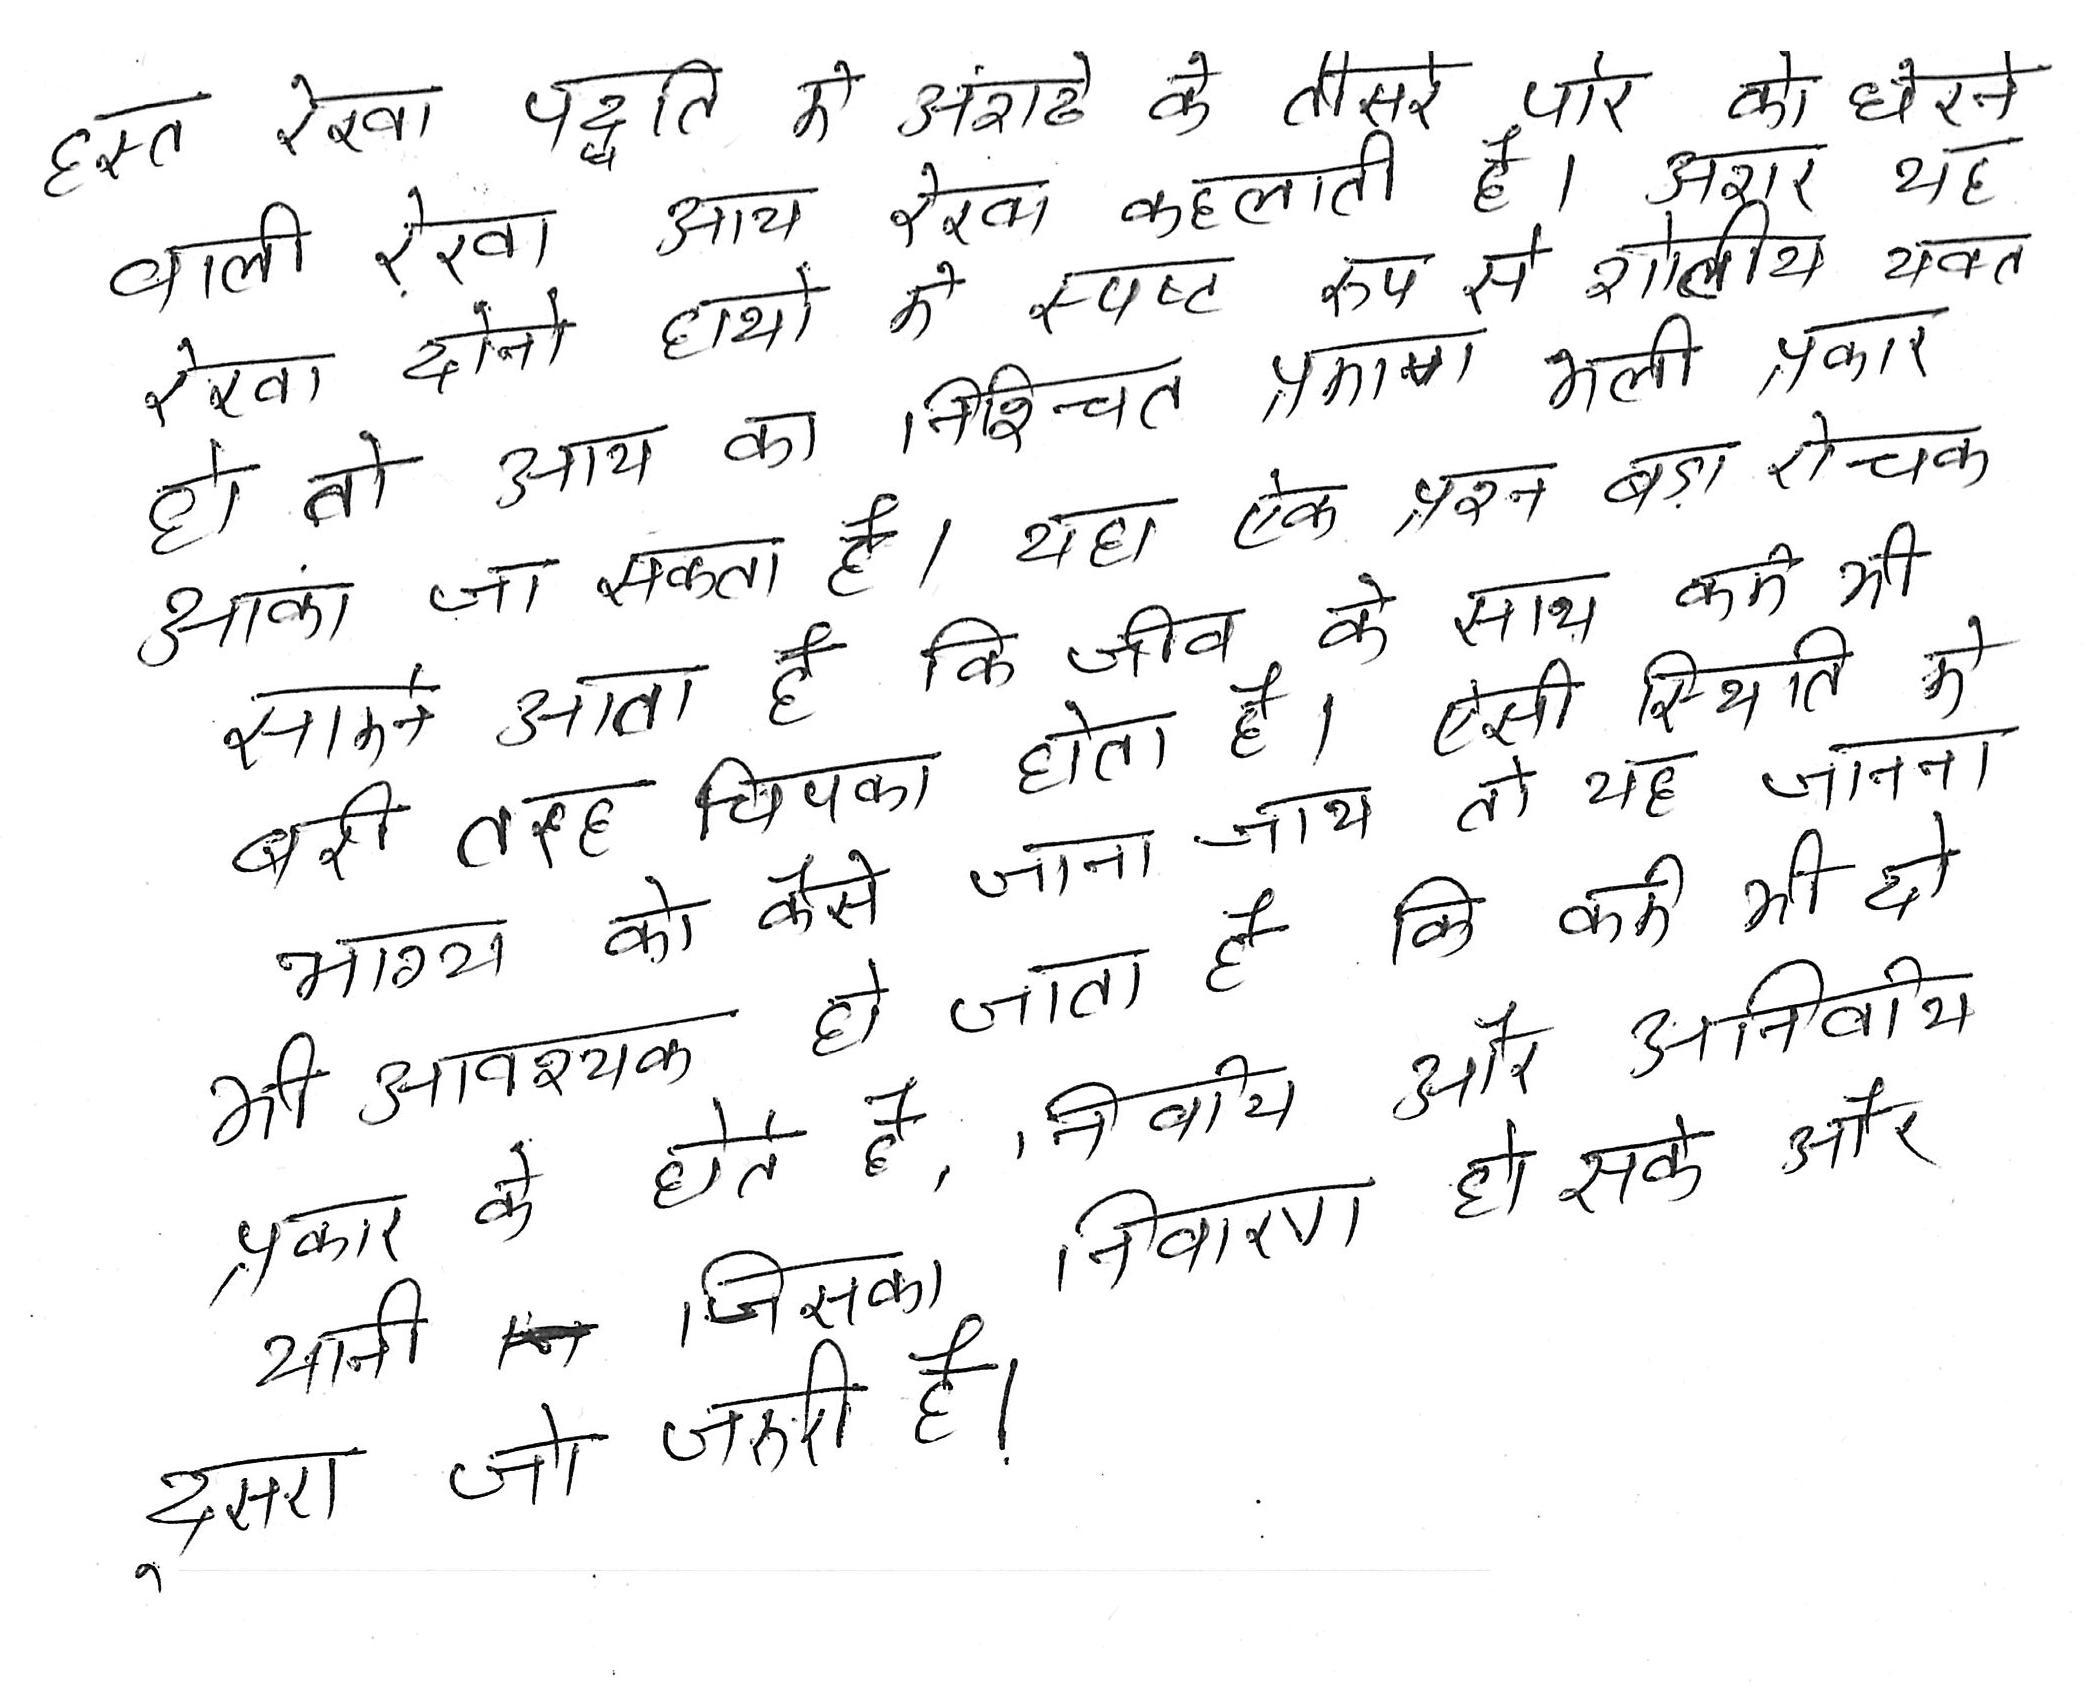 हस्त रेखा पद्धति मे अंगठे के तीसरे पोर को घेरने
वाली रेखा आय रेखा कहलाती है। अगर यह
रेखा दोनो हाथो मे स्पष्ट रुप से गोलीय यक्त
हो तो आय का निश्चित प्रमाण भली प्रकार
आकां जा सकता है। यहा ऐक प्रश्न बड़ा रोचक
सामने आता है कि जीव के साथ कर्म भी
बरी तरह चिपका होता है। ऐसी स्थिति मे
भाग्य को कैसे जाना जाय तो यह जानना
भी आवश्यक हो जाता है कि कर्म भी दो
प्रकार के होते है, निर्वाय और अनिर्वाय
यानी जिसका निवारण हो सके और
दूसरा जो जरुरी है।